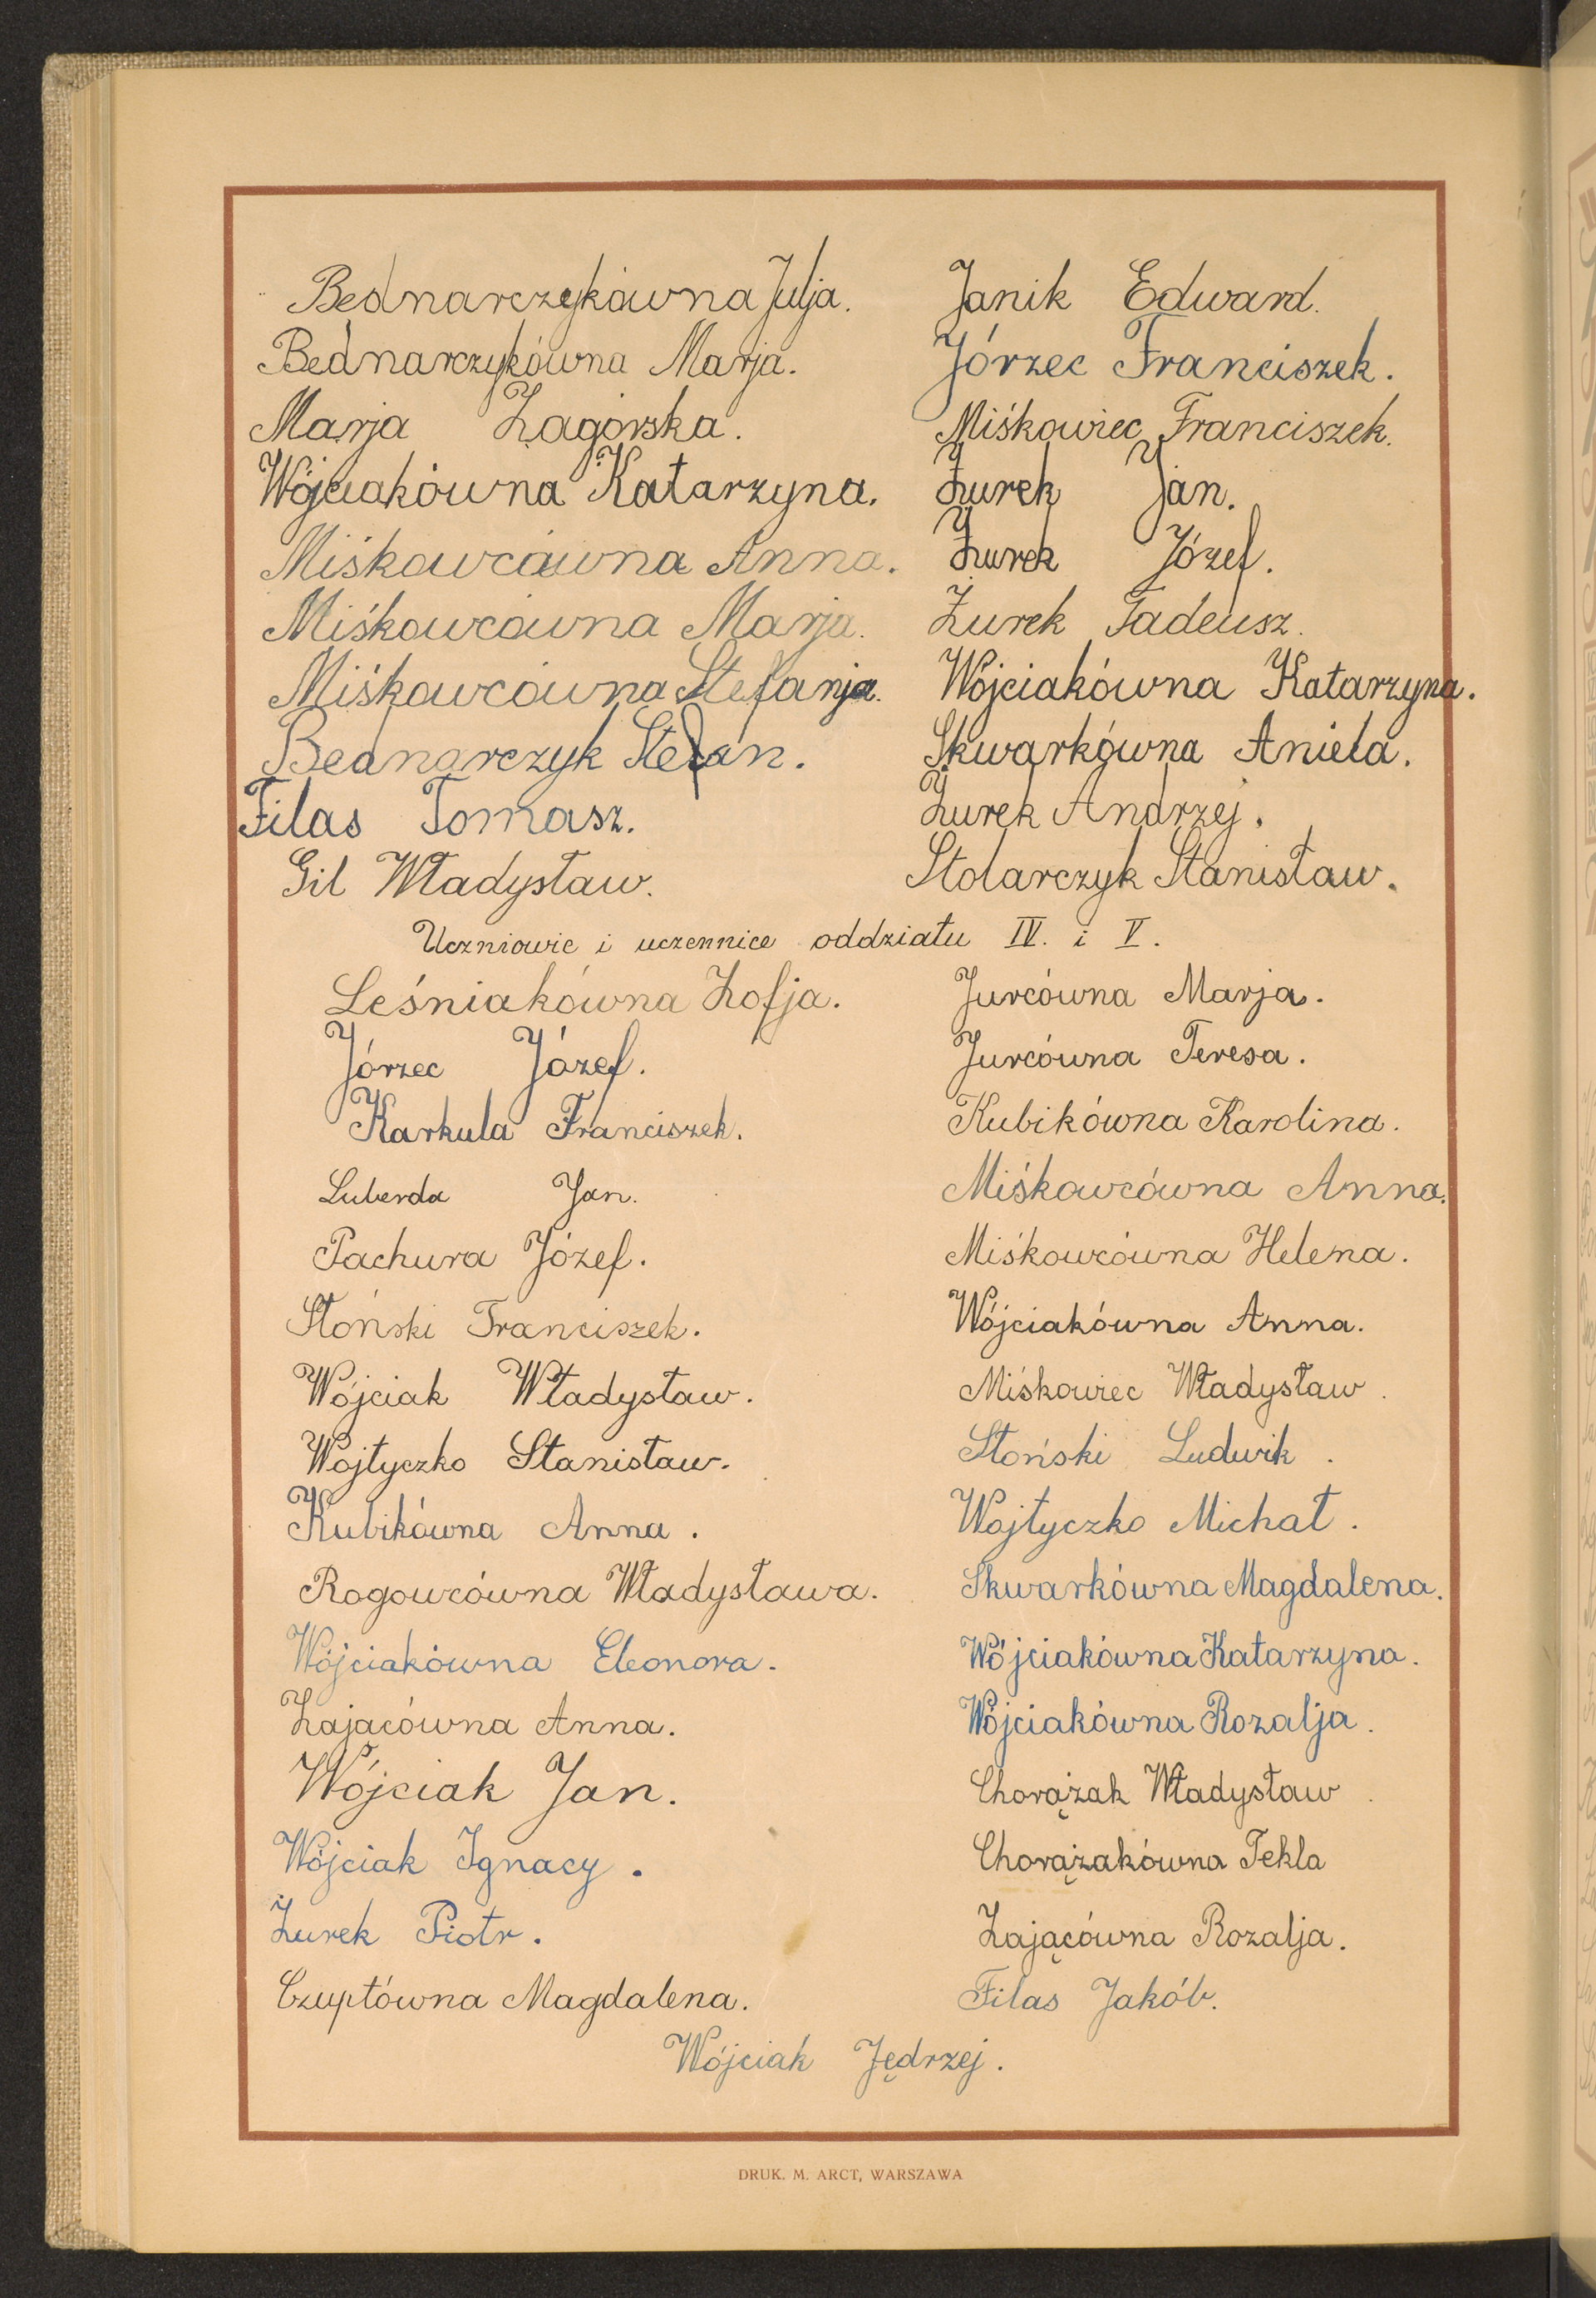 Bednarczykówna Julja.
Bednarczykówna Marja.
Marja Zagórska.
Wójciakówna Katarzyna.
Miśkowcówna Anna.
Miśkowcówna Marja.
Miśkowcówna Stefanja.
Bednarczyk Stefan.
Filas Tomasz.
Gil Władysław.
Janik Edward.
Jórzec Franciszek.
Miśkowiec Franciszek.
Żurek Jan.
Żurek Józef.
Żurek Tadeusz.
Wójciakówna Katarzyna.
Skwarkówna Aniela.
Żurek Andrzej.
Stolarczyk Stanisław.
Uczniowie i uczennice oddziału IV. i V.
Leśniakówna Zofja.
Jórzec Józef.
Karkula Franciszek.
Luberda Jan.
Pachura Józef.
Słoński Franciszek.
Wójciak Władysław.
Wojtyczko Stanisław.
Kubikówna Anna.
Rogowcówna Władysława.
Wójciakówna Eleonora.
Zajacówna Anna.
Wójciak Jan.
Wójciak Ignacy.
Żurek Piotr.
Czuptówna Magdalena.
Jurcówna Marja.
Jurcówna Teresa.
Kubikówna Karolina.
Miśkowcówna Anna.
Miśkowcówna Helena.
Wójciakówna Anna.
Miśkowiec Władysław.
Słoński Ludwik.
Wojtyczko Michał.
Skwarkówna Magdalena.
Wójciakówna Katarzyna.
Wójciakówna Rozalja.
Chorążak Władysław.
Chorążakówna Tekla
Zającówna Rozalja.
Filas Jakób.
Wójciak Jędrzej.
DRUK. M. ARCT, WARSZAWA